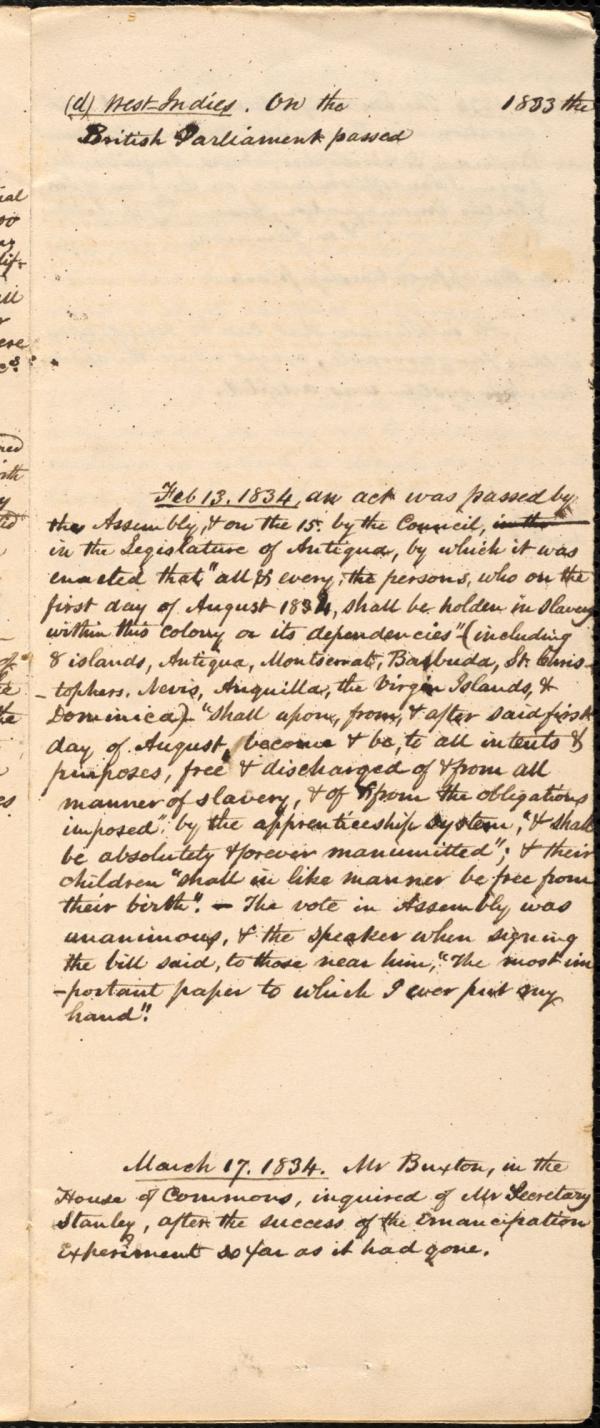 (d) West-Indies. On the 1833 the
British Parliament passed
Feb 13. 1834, an act was passed by
the Assembly, & on the 15. by the Council, in the
in the Legislature of Antigua, by which it was
enacted that "all & every, the persons, who on the
first day of August 1834, shall be holden in slavery
within this colony or its dependencies" (including
8 islands, Antigua, Montserrat, Barbuda, St. Chris-
-tophers. Nevis, Anguilla, the Virgin Islands, &
Dominica) - "shall upon, from, & after said first
day of August, become & be, to all intents &
purposes, free & discharged of & from all
manner of slavery, & of & from the obligations
imposed", by the apprenticeship system, "& shall
be absolutely & forever manumitted"; & their
children "shall in like manner be free from
their birth". — The vote in Assembly was
unanimous, & the speaker when signing
the bill said, to those near him, "The most im
-portant paper to which I ever put my
hand".
March 17. 1834. Mr Buxton, in the
House of Commons, inquired of Mr Secretary
Stanley, after the success of the Emancipation
Experiment so far as it had gone.